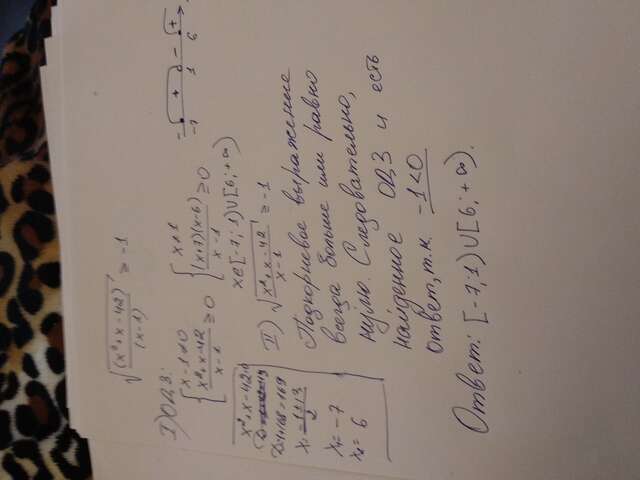 √((x²+x-42)/(x-1)) ≥ -1
I) ОДЗ:
{ x-1≠0
{ (x²+x-42)/(x-1) ≥ 0
{ x≠1
{ ((x+7)(x-6))/(x-1) ≥ 0
x∈[-7;1)∪[6;+∞)
- + - +
-7 1 6
x²+x-42=0
D=1+168=169
x=(-1±13)/2
x₁=-7
x₂=6
II) √((x²+x-42)/(x-1)) ≥ -1
Подкорневое выражение
всегда больше или равно
нулю. Следовательно,
найденное ОДЗ и есть
ответ, т.к. -1<0
Ответ: [-7;1)∪[6;+∞).